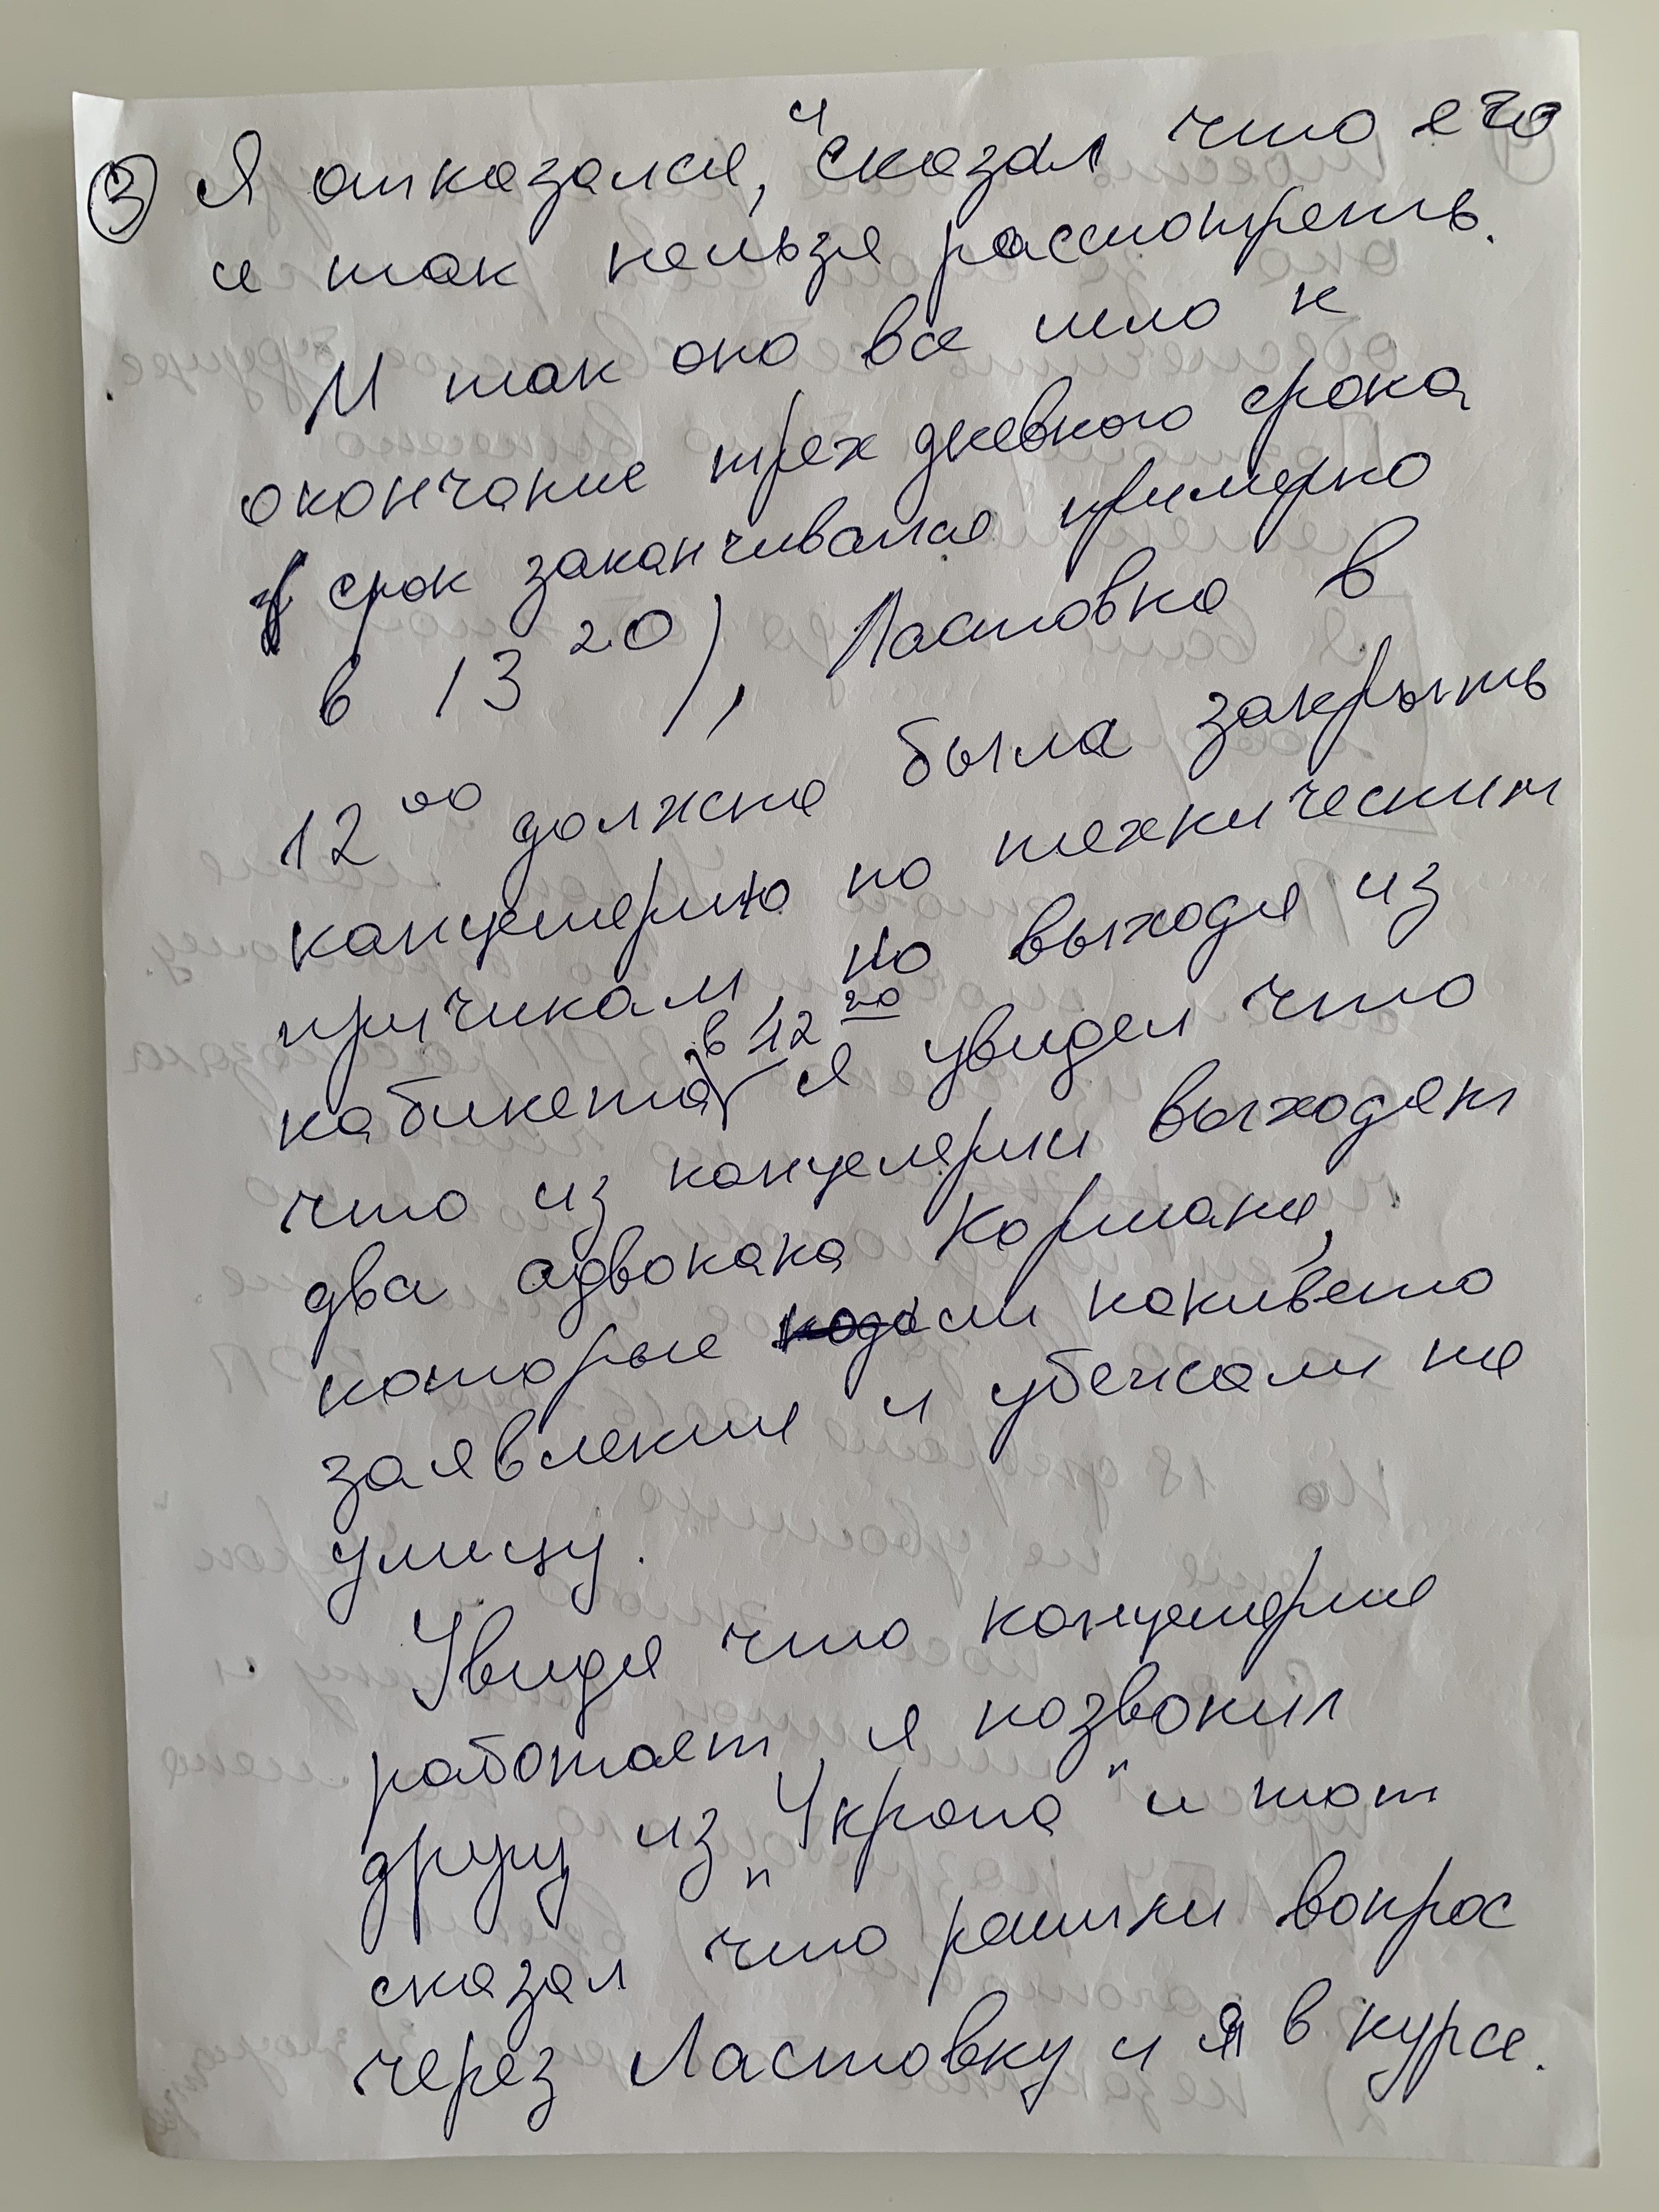 ③ Я отказался, и сказал что его
и так нельзя рассмотреть.
И так оно все шло к
окончание трех дневного срока
срок заканчивался примерно
в 13 20), Ластовка в
12 00 должна была закрыть
канцелярию по техническим
причинам, но выходя из
кабинета в 12 20 я увидел что
что из канцелярии выходят
два адвоката Кормана,
которые сли какието
заявления и убежали на
улицу.
Увидя что канцелярия
работает, я позвонил
другу из „Укропа" и тот
сказал что решили вопрос
через Ластовку и я в курсе.